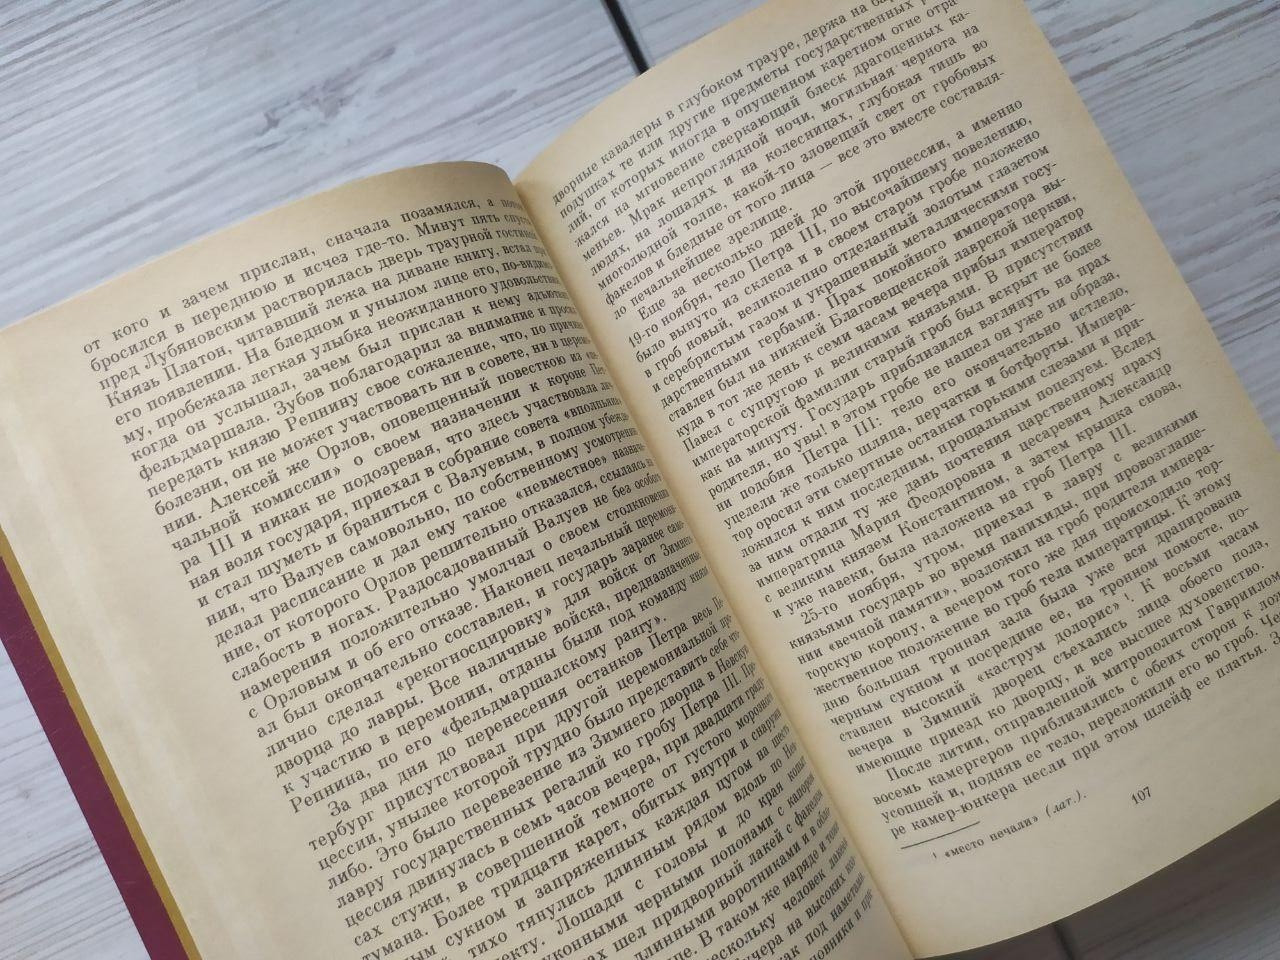 от кого и зачем прислан, сначала позамялся, а
бросился в переднюю и исчез где-то. Минут пять спустя
пред Лубяновским растворилась дверь траурной гостиной
Князь Платон, читавший лежа на диване книгу, встал при
его появлении. На бледном и унылом лице его, по-видимо-
му, пробежала легкая улыбка неожиданного удовольствия,
когда он услышал, зачем был прислан к нему адъютант
фельдмаршала. Зубов поблагодарил за внимание и просил
передать князю Репнину свое сожаление, что, по причине
болезни, он не может участвовать ни в совете, ни в церемо-
нии. Алексей же Орлов, оповещенный повесткою из «пе-
чальной комиссии» о своем назначении к короне Пет-
ра III и никак не подозревая, что здесь участвовала лич-
ная воля государя, приехал в собрание совета «вполпьяна»
и стал шуметь и браниться с Валуевым, в полном убежде-
нии, что Валуев самовольно, по собственному усмотрению
делал расписание и дал ему такое «невместное» назначе-
ние, от которого Орлов решительно отказался, ссылаясь на
слабость в ногах. Раздосадованный Валуев не без особого
намерения положительно умолчал о своем столкновении
с Орловым и об его отказе. Наконец печальный церемони-
ал был окончательно составлен, и государь заранее сам
лично сделал «рекогносцировку» для войск от Зимнего
дворца до лавры. Все наличные войска, предназначенные
к участию в церемонии, отданы были под команду князя
Репнина, по его «фельдмаршалскому рангу».
За два дня до перенесения останков Петра весь Пе-
тербург присутствовал при другой церемониальной про-
цессии, унылее которой трудно было представить себе что-
либо. Это было перевезение из Зимнего дворца в Невскую
лавру государственных регалий ко гробу Петра III. Про-
цессия двинулась в семь часов вечера, при двадцати граду-
сах стужи, в совершенной темноте от густого морозного
тумана. Более тридцати карет, обитых внутри и снаружи
ным сукном и запряженных каждая цугом на шесть
тихо тянулись длинным рядом вдоль по Нев-
екту. Лошади с головы и до края копыт
уконными черными попонами с капором
ах шел придворный лакей с факелом
длинными воротниками и в обши
пе. В таком же наряде и тоже
есколько человек
учера на высоких
как под наметами.
повники и при
дворные кавалеры в глубоком трауре, держа на
подушках те или другие предметы государственных
лий, от которых иногда в опущенном каретном огне отра-
жался на мгновение сверкающий блеск драгоценных ка-
меньев. Мрак непроглядной ночи, могильная чернота на
людях, на лошадях и на колесницах, глубокая тишь во
многолюдной толпе, какой-то зловещий свет от гробовых
факелов и бледные от того лица — все это вместе составля-
ло печальнейшее зрелище.
Еще за несколько дней до этой процессии, а именно
19-го ноября, тело Петра III, по высочайшему повелению,
было вынуто из склепа и в своем старом гробе положено
в гроб новый, великолепно отделанный золотым глазетом
и серебристым газом и украшенный металлическими госу-
дарственными гербами. Прах покойного императора вы-
ставлен был на нижней Благовещенской лаврской церкви,
куда в тот же день к семи часам вечера прибыл император
Павел с супругою и великими князьями. В присутствии
императорской фамилии старый гроб был вскрыт не более
как на минуту. Государь приблизился взглянуть на прах
родителя, но увы! в этом гробе не нашел он уже ни образа,
ни подобия Петра III: тело его окончательно истлело,
уцелели же только шляпа, перчатки и ботфорты. Импера-
тор оросил эти смертные останки горькими слезами и при-
ложился к ним последним, прощальным поцелуем. Вслед
за ним отдали ту же дань почтения царственному праху
императрица Мария Феодоровна и цесаревич Александр
с великим князем Константином, а затем крышка снова,
и уже навеки, была наложена на гроб Петра III.
25-го ноября, утром, приехал в лавру с великими
князьями государь во время панихиды, при провозглаше-
нии «вечной памяти», возложил на гроб родителя импера-
торскую корону, а вечером того же дня происходило тор-
жественное положение во гроб тела императрицы. К этому
дню большая тронная зала была уже вся драпирована
черным сукном и посредине ее, на тронном помосте, по-
ставлен высокий «каструм долорис» ¹. К восьми часам
вечера в Зимний дворец съехались лица обоего пола,
имеющие приезд ко дворцу, и все высшее духовенство.
После литии, отправленной митрополитом Гавриилом,
восемь камергеров приблизились с обеих сторон к
усопшей и, подняв ее тело, переложили его во гроб.
ре камер-юнкера несли при этом шлейф ее платья.
¹ «место печали» (лат.).
107